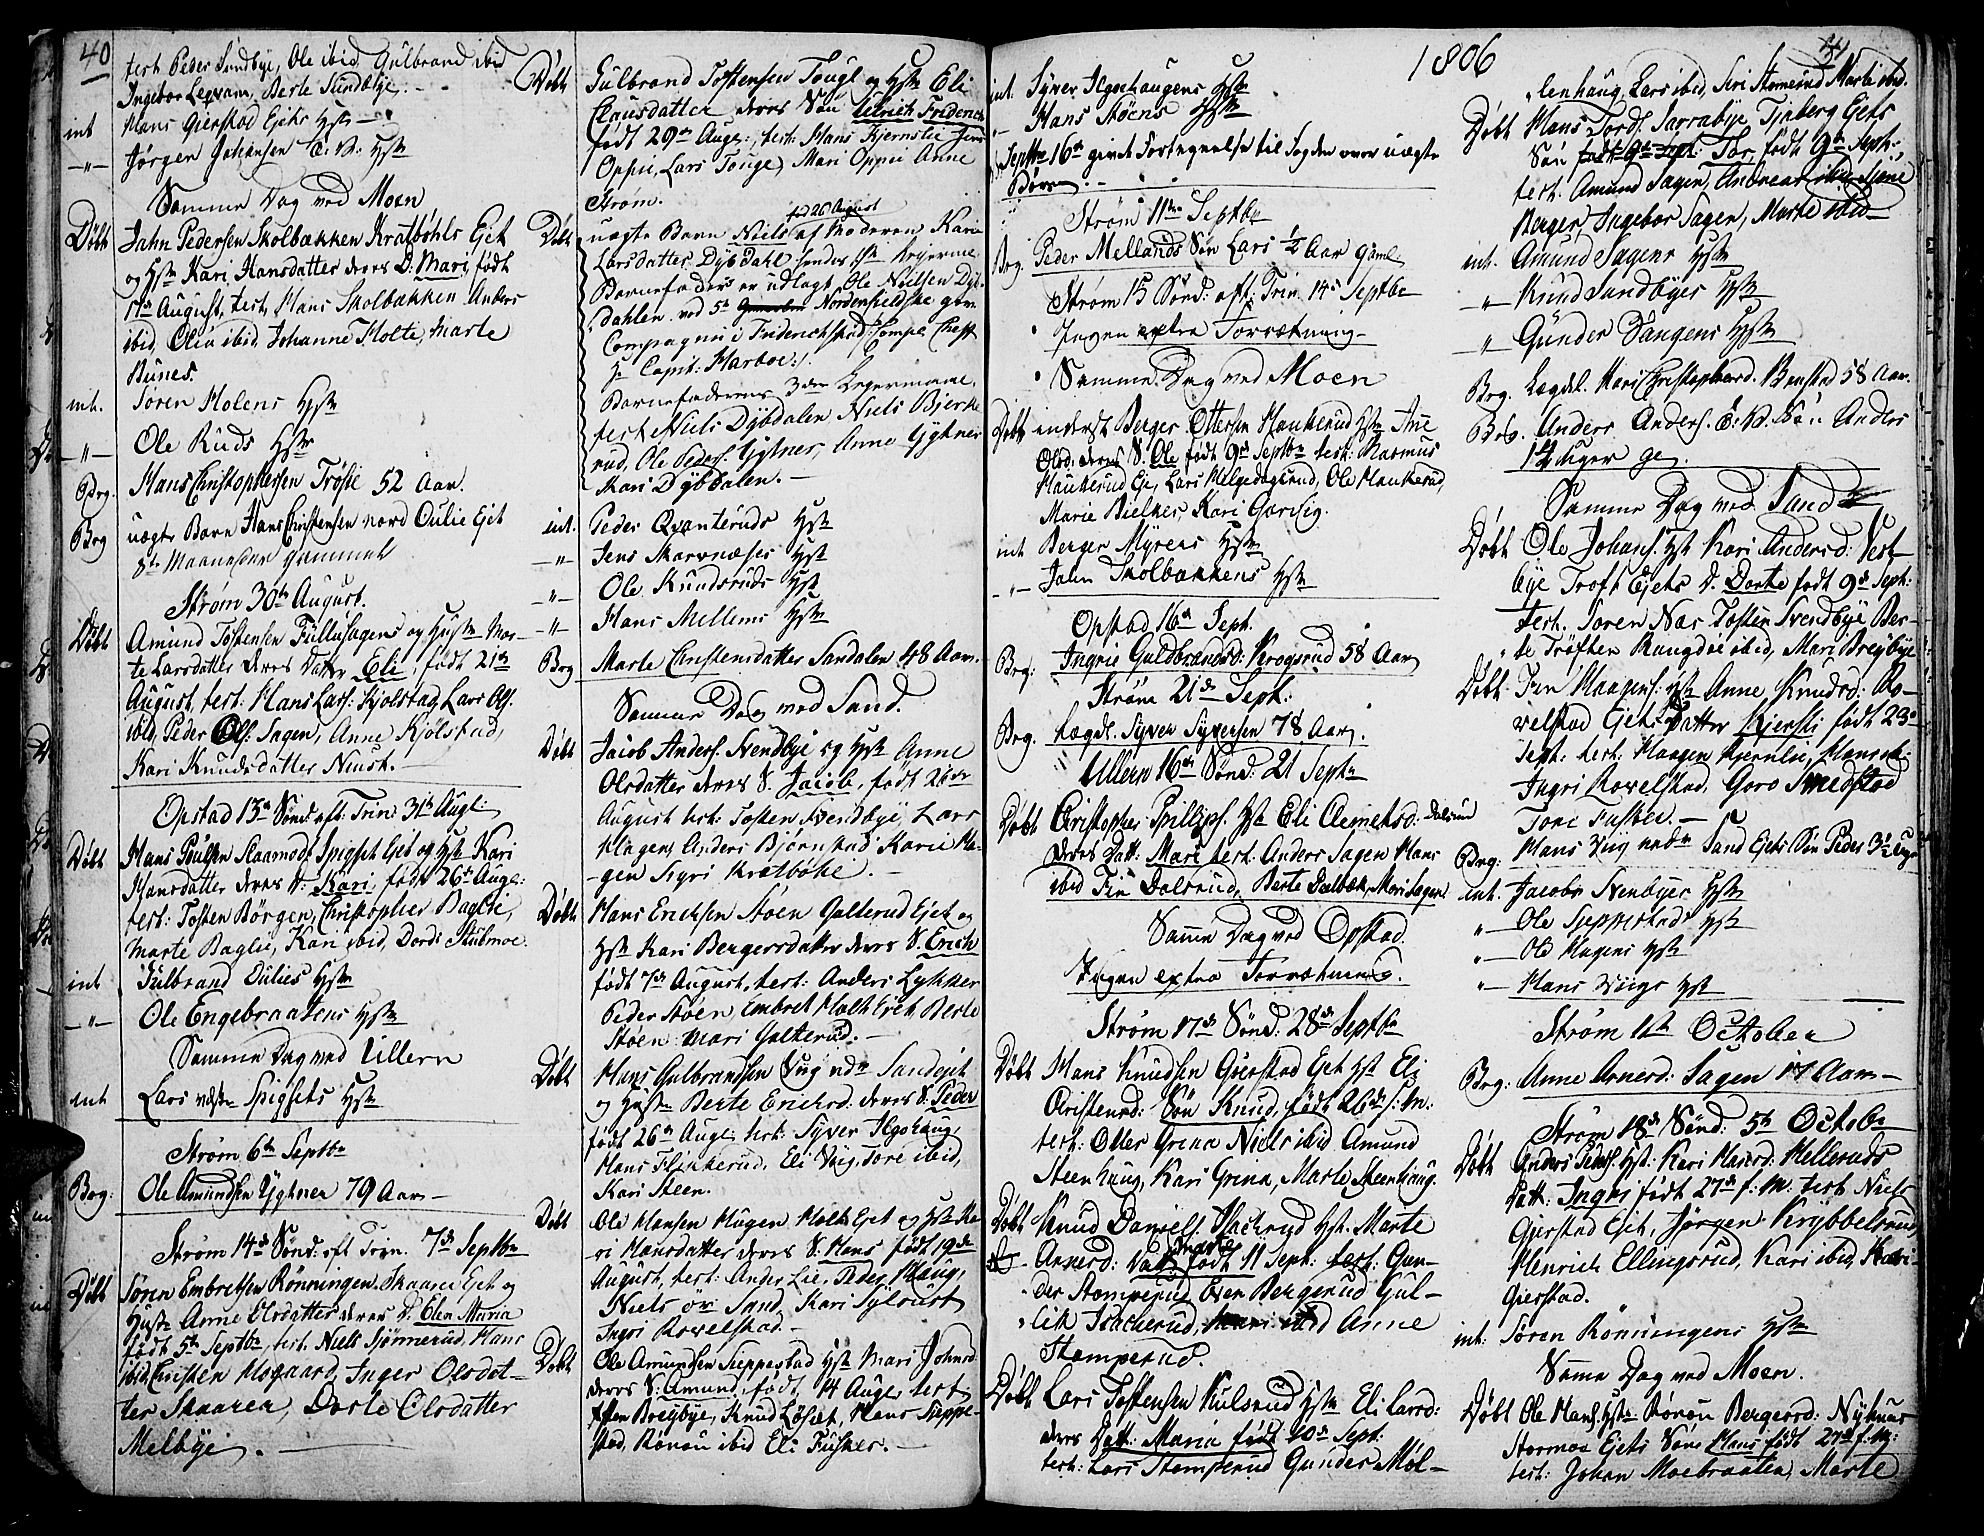 40
test. Peder Sundbye, Ole ibid Gulbrand ibid
Ingebor Legvam, Berte Sundbye.
int Hans Gierstad Ejets Hstr
–"– Jørgen Johansen Hstr
Samme Dag ved Moen
Døbt Jahn Pedersen Skolbækken Kratbøhls Ejet
og Hstr Kari Hansdatter deres D: Mari, født
17de August, test. Hans Skolbækken Anders
ibid Olia ibid Johanne Holte, Marte
Bunes.
int. Soren Holens Hstr
–"– Ole Ruds Hstr
Brg. Hans Christophersen Trøste 52 Aar.
Brg uægte Barn Hans Christensen nord Oulie Ejet
8te Maaneder gammel
Strøm 30te August.
Døbt Amund Tostensen Füllusagens og Hustr Mar-
te Larsdatter deres Datr Eli, født 21de
August, test. Hans Lars: Kjolstad, Lars Ols.
ibid, Peder Ols: Sagen, Anne Kjølstad,
Kari Knudsdatter Neust.
Opstad 13de Sönd. aft. Trin: 31te Aug:
Døbt Hans Poulsen Slaamodt Spigset Ejet og Hstr Kari
Hansdatter deres D: Kari, født 26de Aug:
test: Tosten Börgen, Christopher Baglie,
Marte Baglie, Kari ibid, Dordi Stubmoe.
int Gulbrand Oulies Hstr
–"– Ole Engebraatens Hstr
Samme Dag ved Ullern
int Lars Spigsets Hstr
Strøm 6te Septbr
Brg: Ole Amundsen Ygtner 79 Aar
Strøm 14de Sönd. aft Trin. 7de Septbr
Døbt Søren Embretsen Rönningen Skaarer Ejet og
Hustr Anne Olsdatter deres D. Elen Maria
født 5te Septbr, test. Niels Sjönnerud, Hans
ibid, Christen Mogaard, Inger Olsdat-
ter Skaarer, Dorte Olsdatter
Melbye.
Døbt Gulbrand Tostensen Tougl og Hstr Eli
Clausdatter deres Sön Ulrich Friderich
født 29de Aug:, test: Hans Kjernslie Jens
Oppii, Lars Touge, Mari Oppii Anne
Strøm.
Døbt uægte Barn Niels fød 26 August af Moderen Karie
Larsdatter Dyb Dahl hendes 1ste Lejerm.
Barnefader er udlagt Ole Nielsen Dyb-
dahlen ved 5te Nordenfieldske gev.
Compagnii i Friderichstad, Compl: Cheff
Hr Capit: Harboe.
Barnefaderens 3die Lejermaal.
test. Niels Dybdalen, Niels Bjerke
rud, Ole Peders. Ygtner, Anne Ygtner
Kari Dybdalen.
int. Peder Qvanteruds Hstr
–"– Jens Skarvnæses Hstr
–"– Ole Knudsruds Hstr
–"– Hans Mellems Hstr
Brg Marte Christensdatter Sandalen 48 Aar.
Sammer Dag ved Sand.
Døbt Jacob Anders. Svendbye og Hstr Anne
Olsdatter deres S. Jacob, født 26de
August test: Tosten Svendbye, Lars
Hagen, Anders Björnstad Karie Ha-
gen Sigri Kratböhl.
Døbt Hans Erichsen Støen Galterud Ejet og
Hstr Kari Bergersdatter deres S. Erich
født 7de August, test: Anders Lykker
Peder Støen Embret Holt Erik Berte
Støen Mari Galterud.
Døbt Hans Gulbrandsen Viig Sandejet
og Hustr Berte Ericksd: deres S. Peder
født 26de Aug: test: Syver Ilgshaug,
Hans Flikkerud, Eli Viig, Tore ibid,
Kari Steen.
Døbt Ole Hansen Hagen Holt Ejet og Hstr Ka-
ri Hansdatter deres S: Hans født 19de
August, test: Ander Lie, Peder Haug,
Niels Sand, Kari Sylvust
Ingri Rovelstad.
Døbt Ole Amundsen Seppestad Hstr Mari Johnsd:
deres S: Amund, født 14 Aug: test
Breybye, Knud Løfset, Hans Seppe-
stad, Rönau ibid Eli Fusker.
1806
41
int. Syver Ilgshaugens Hstr
–"– Hans Støens Hstr
Septbr 16de givet Fortegnelse til Fogden over uægte
Børn.
Strøm 11te Septbr
Brg. Peder Mellands Sön Lars 1/2 Aar gaml
Strøm 15 Sönd: aft: Trin. 14de Septbr
Ingen extra Forrætning
Samme Dag ved Moen
Døbt inderst Berger Ottersen Haukerud Hstr Ane
Olsd: deres S. Ole født 9de Septbr test: Rasmus
Haukerud Eje, Lars Helgedagsrud, Ole Haukerud,
Marie Bielker, Kari Garsiig.
int Berger Myrers Hstr
–"– Jahn Skolbækkens Hstr
Opstad 16de Sept.
Brg: Ingrie Guldbrandsd: Krogsrud 58 Aar
Strøm 21de Sept:
Brg. Lægdsl. Syver Syversen 78 Aar.
Ullern 16de Sönd: 21 Septbr
Døbt Christopher Phillips: Hst Eli Clemetsd: Dalsrud
deres Datt: Mari test: Anders Sagen Hans
ibid Fin Dalsrud, Berte Dalbæk, Mari Sagen
Samme Dag ved Opstad.
Ingen extra Forrætning.
Strøm 17de Sönd: 28de Septbr
Døbt Hans Knudsen Gierstad Ejet Hst Eli
Christensd: Sön Knud, født 26de f: M:
test: Otter Grina Niels ibid Amund
Steenhaug, Kari Grina, Marte Steenhaug.
Døbt Knud Daniels Isachrud Hst: Marte
Arnerd: Datt: Marte født 11 Sept: test: Gun-
der Stomperud Even Bergerud Gul-
lik Isacherud, Mari ibid Anne
Stomperud.
Døbt Lars Tostensen Kulsrud Hstr Eli Larsd:
deres Datt: Maria født 20de Sept:
test: Lars Stomperud Gunder Møl-
lenhaug, Lars ibid, Siri Stomerud Marte ibid.
Døbt Hans Tords. Sarrabye Tjaberg Ejets
Sön født 9de Sept: Tor, født 9de Sept:
test. Amund Sagen, Andreas ibid Siene
Berger, Ingebor Sagen, Marte ibid
int. Amund Sagens Hstr
–"– Knud Sandbyes Hstr
–"– Günder Vangens Hstr
Brg. Lægdsl. Kari Christophersd. Benstad 58 Aar.
Brg. Anders Anders: Anders
14 Uger gl.
Samme Dag ved Sand
Døbt Ole Johans: Hst Kari Andersd: Vest-
bye Troft Ejets D. Dorte født 9de Sept:
test. Soren Nær Tosten Svendbye Ber-
te Tröften Rangdie ibid, Mari Breybye
Døbt: Fin Haagens: Hstr Anne Knudsd: Ro-
velstad Ejets Datter Kjersti født 23de
Sept: test: Haagen Kjernlie, Hans ibid
Ingri Rovelstad, Goro Smedstad
Tore Fusker.
Brg: Hans Viig Sand Ejets Sön Peder 3 1/2 Uge
int: Jacobs Svenbyes Hstr
–"– Ole Seppestads Hst
–"– Ole Hagens Hst
–"– Hans Viigs Hst
Strøm 1te October
Brg: Anne Arnerd: Sagen 17 Aar
Strøm 18de Sönd: 5te Octobr
Døbt Anders Peders: Hst: Kari Hansd: Helleruds
Datt: Ingri født 27de f: M: test Niels
Gierstad Ejet, Jørgen Krybbelsrud,
Henrich Ellingsrud, Kari ibid, Kari
Gierstad.
int: Søren Rönningens Hstr
Samme Dag ved Moen.
Døbt Ole Hans: Hstr Rönou Bergersd: Nyhuus
Stormoe Ejets Sön Hans født 27de f: M:
test: Johan Moebraaten, Marte